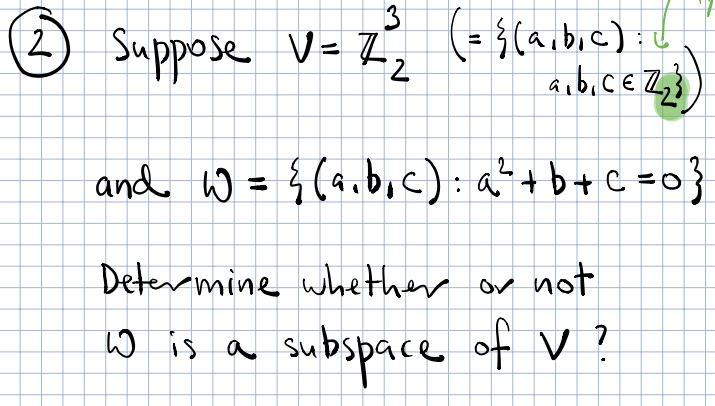 ② Suppose V = ℤ₂³ (= {(a,b,c) :
a,b,c ∈ ℤ₂})
and W = {(a,b,c) : a² + b + c = 0}
Determine whether or not
W is a subspace of V ?